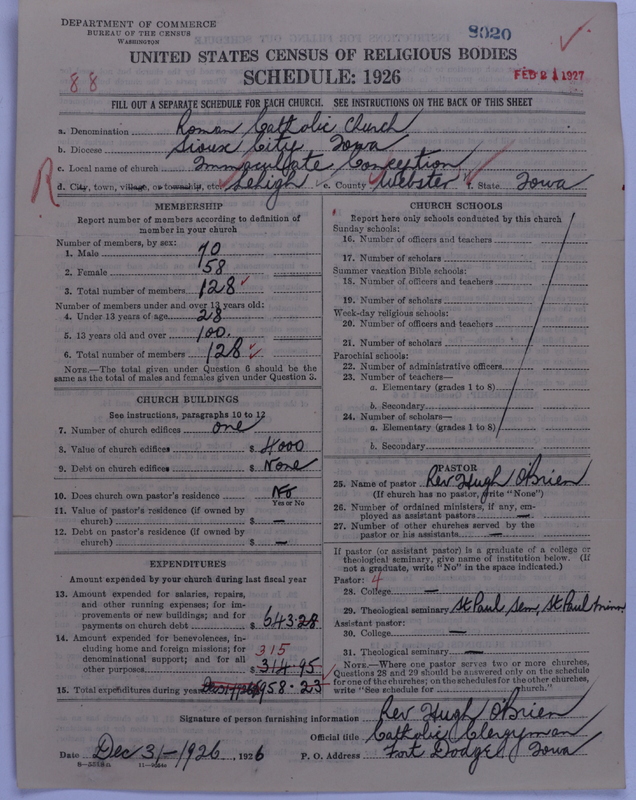 DEPARTMENT OF COMMERCE
BUREAU OF THE CENSUS
WASHINGTON
8020
UNITED STATES CENSUS OF RELIGIOUS BODIES
SCHEDULE: 1926
88
FEB 21 1927
FILL OUT A SEPARATE SCHEDULE FOR EACH CHURCH. SEE INSTRUCTIONS ON THE BACK OF THIS SHEET
a. Denomination Roman Catholic Church
b. Diocese Sioux City Iowa
c. Local name of church Immaculate Conception
R
d. City, town, village, or township, etc. Lehigh e. County Webster f. State Iowa
MEMBERSHIP
Report number of members according to definition of
member in your church
Number of members, by sex:
1. Male 70
2. Female 58
3. Total number of members 128
Number of members under and over 13 years old:
4. Under 13 years of age 28
5. 13 years old and over 100.
6. Total number of members 128
NOTE.—The total given under Question 6 should be the
same as the total of males and females given under Question 3.
CHURCH BUILDINGS
See instructions, paragraphs 10 to 12
7. Number of church edifices one
8. Value of church edifices $ 4000
9. Debt on church edifices $ None
10. Does church own pastor's residence No
Yes or No
11. Value of pastor's residence (if owned by
church) $ —
12. Debt on pastor's residence (if owned by
church) $ —
EXPENDITURES
Amount expended by your church during last fiscal year
13. Amount expended for salaries, repairs,
and other running expenses; for im-
provements or new buildings; and for
payments on church debt $ 643.28
14. Amount expended for benevolences, in-
cluding home and foreign missions; for
denominational support; and for all
315
other purposes $ 314.95
15. Total expenditures during year 958.23
CHURCH SCHOOLS
Report here only schools conducted by this church
Sunday schools:
16. Number of officers and teachers
17. Number of scholars
Summer vacation Bible schools:
18. Number of officers and teachers
19. Number of scholars
Week-day religious schools:
20. Number of officers and teachers
21. Number of scholars
Parochial schools:
22. Number of administrative officers
23. Number of teachers—
a. Elementary (grades 1 to 8)
b. Secondary
24. Number of scholars—
a. Elementary (grades 1 to 8)
b. Secondary
PASTOR
25. Name of pastor Rev Hugh O'Brien
(If church has no pastor, write "None")
26. Number of ordained ministers, if any, em-
ployed as assistant pastors —
27. Number of other churches served by the
pastor or his assistants —
If pastor (or assistant pastor) is a graduate of a college or
theological seminary, give name of institution below. (If
not a graduate, write "No" in the space indicated.)
Pastor: 4
28. College —
29. Theological seminary St Paul, Sem, St Paul Minn
Assistant pastor:
30. College —
31. Theological seminary —
NOTE.—Where one pastor serves two or more churches,
Questions 28 and 29 should be answered only on the schedule
for one of the churches; on the schedules for the other churches,
write "See schedule for church."
Signature of person furnishing information Rev Hugh O'Brien
Official title Catholic Clergyman
Date Dec 31—1926, 1926 P. O. Address Fort Dodge, Iowa